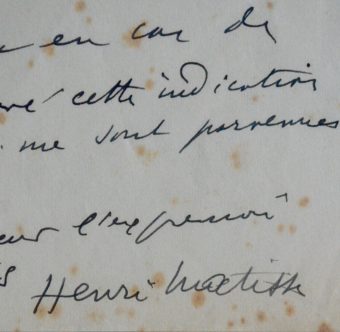 en cas de
cette indication
me sont parvenues
l'expression
Henri Matisse